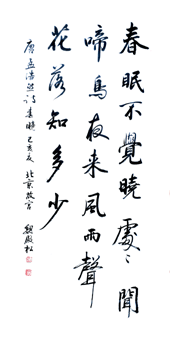 春眠不覺曉處〻聞
啼鳥夜来風雨聲
花落知多少
唐孟浩然诗春曉 己亥夏 北京故宫 魏殿松